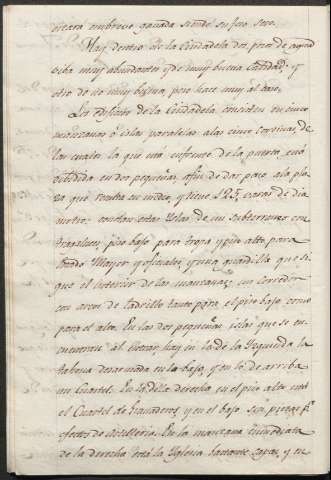 estará embreve ganada siendo su foso seco.
Hay dentro de la Ciudadela dos pozos de agua
viva muy abundantes y de muy buena calidad; y
otro de no muy buena, pero hace muy al caso.
Los edificios de la Ciudadela consisten en cinco
manzanas ó islas paralelas a las cinco cortinas, de
las cuales la que está enfrente de la puerta, está
dividida en dos pequeñas, afin de dar paso a la pla
za que forma su medio, y tiene 125, varas de dia
metro: constan estas Yslas de un subterraneo con
tragaluces, piso bajo para tropa y piso alto para
Estado Mayor y oficiales, y una guardilla que si
gue el interior de las manzanas, un corredor
con arcos de ladrillo tanto para el piso bajo como
para el alto. En las dos pequeñas islas que se en
cuentran al entrar, hay en la de la Yzquierda la
taberna desarmada en lo bajo, y en lo de arriba
un Cuartel. En la de la derecha en el piso alto está
el Cuartel de Granaderos y en el bajo seis piezas pª
efectos de artilleria. En la manzana inmediata
de la derecha está la Yglesia bastante capaz, y en